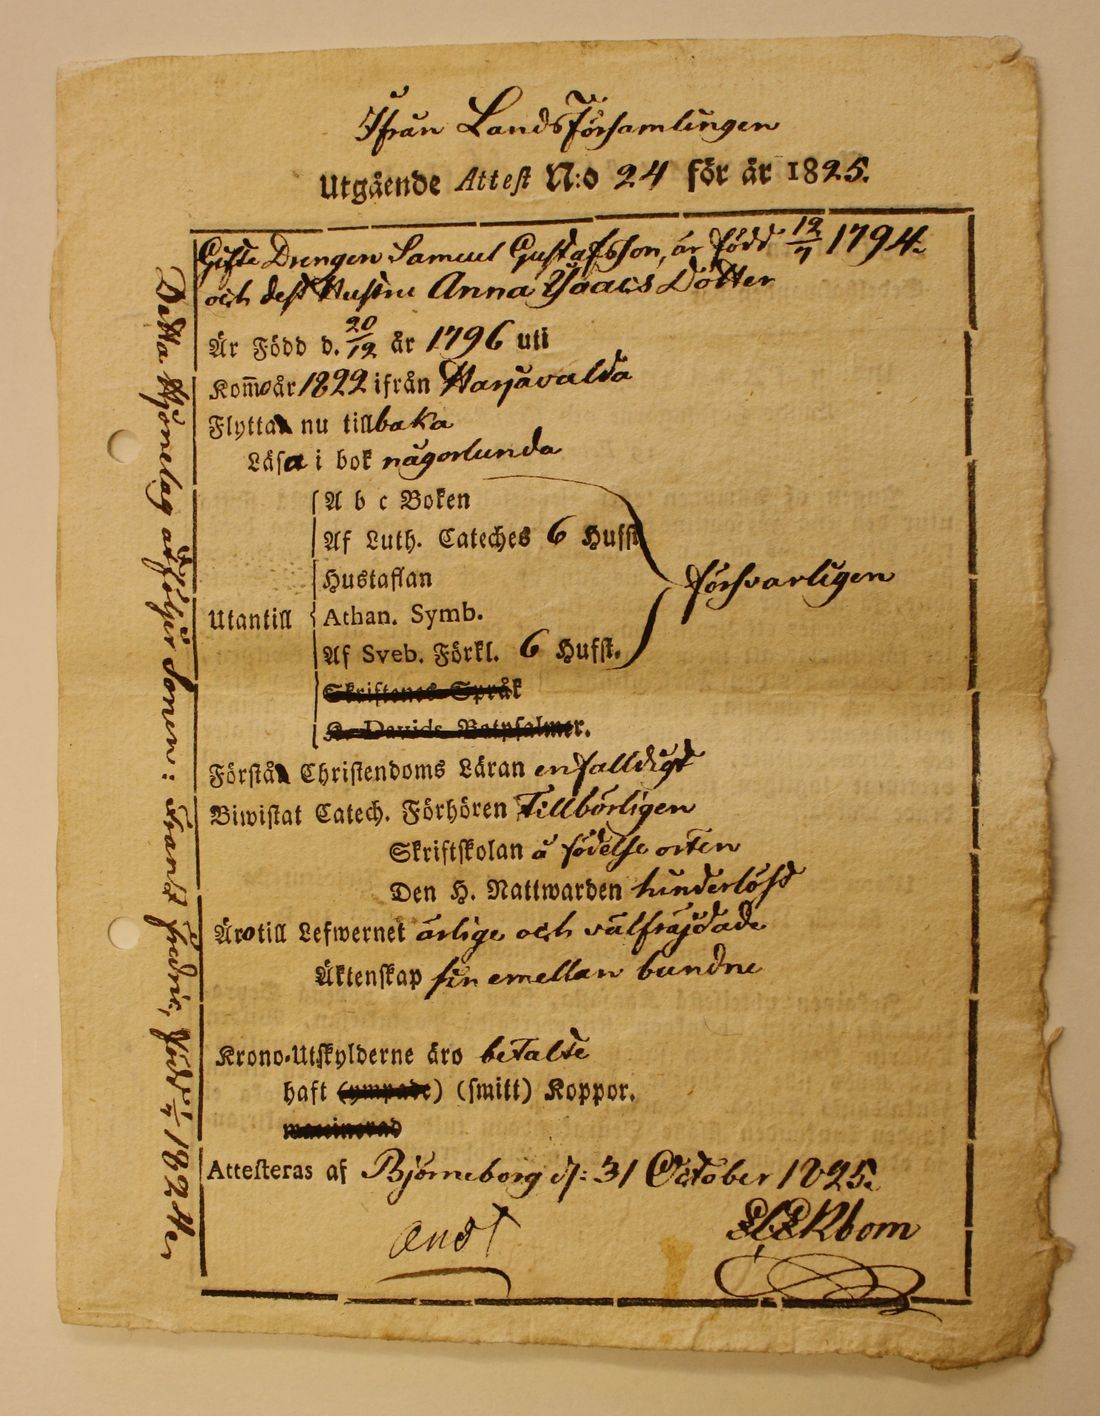 Ifrån Lands Församlingen
Utgående Attest N:o 24 för år 1825.
Gifte Drengen Samuel Gustafsson, är född 12/7 1794.
och dess Hustru Anna Isaacs Dotter
Är Född d. 20/12 år 1796 uti
Kom̄o år 1822 ifrån Harjavalda
Flytta nu tillbaka
Läsa i bok någorlunda
A b c Boken
Af Luth. Cateches 6 Hufst
Hustaflan
försvarligen
Utantill
Athan. Symb.
Af Sveb. Förkl. 6 Hufst.
Skriftenes Språk
K. Davids Botpsalmer.
Förstå Christendoms Läran enfalldigt
Biwistat Catech. Förhören Tillbörligen
Skriftskolan å födelse orten
Den H. Nattwarden hinderlöst
Äro till Lefwernet ärlige och välfräjdade
Äktenskap sin emellan bundne
Krono-Utskylderne äro betalte
haft (ympade) (smitt) Koppor.
waccinerad
Attesteras af Björneborg d: 31 October 1825.
Ekbom
Detta Hjonelag åtföljer Sonen: Frants Fredric, född 1/4 1824